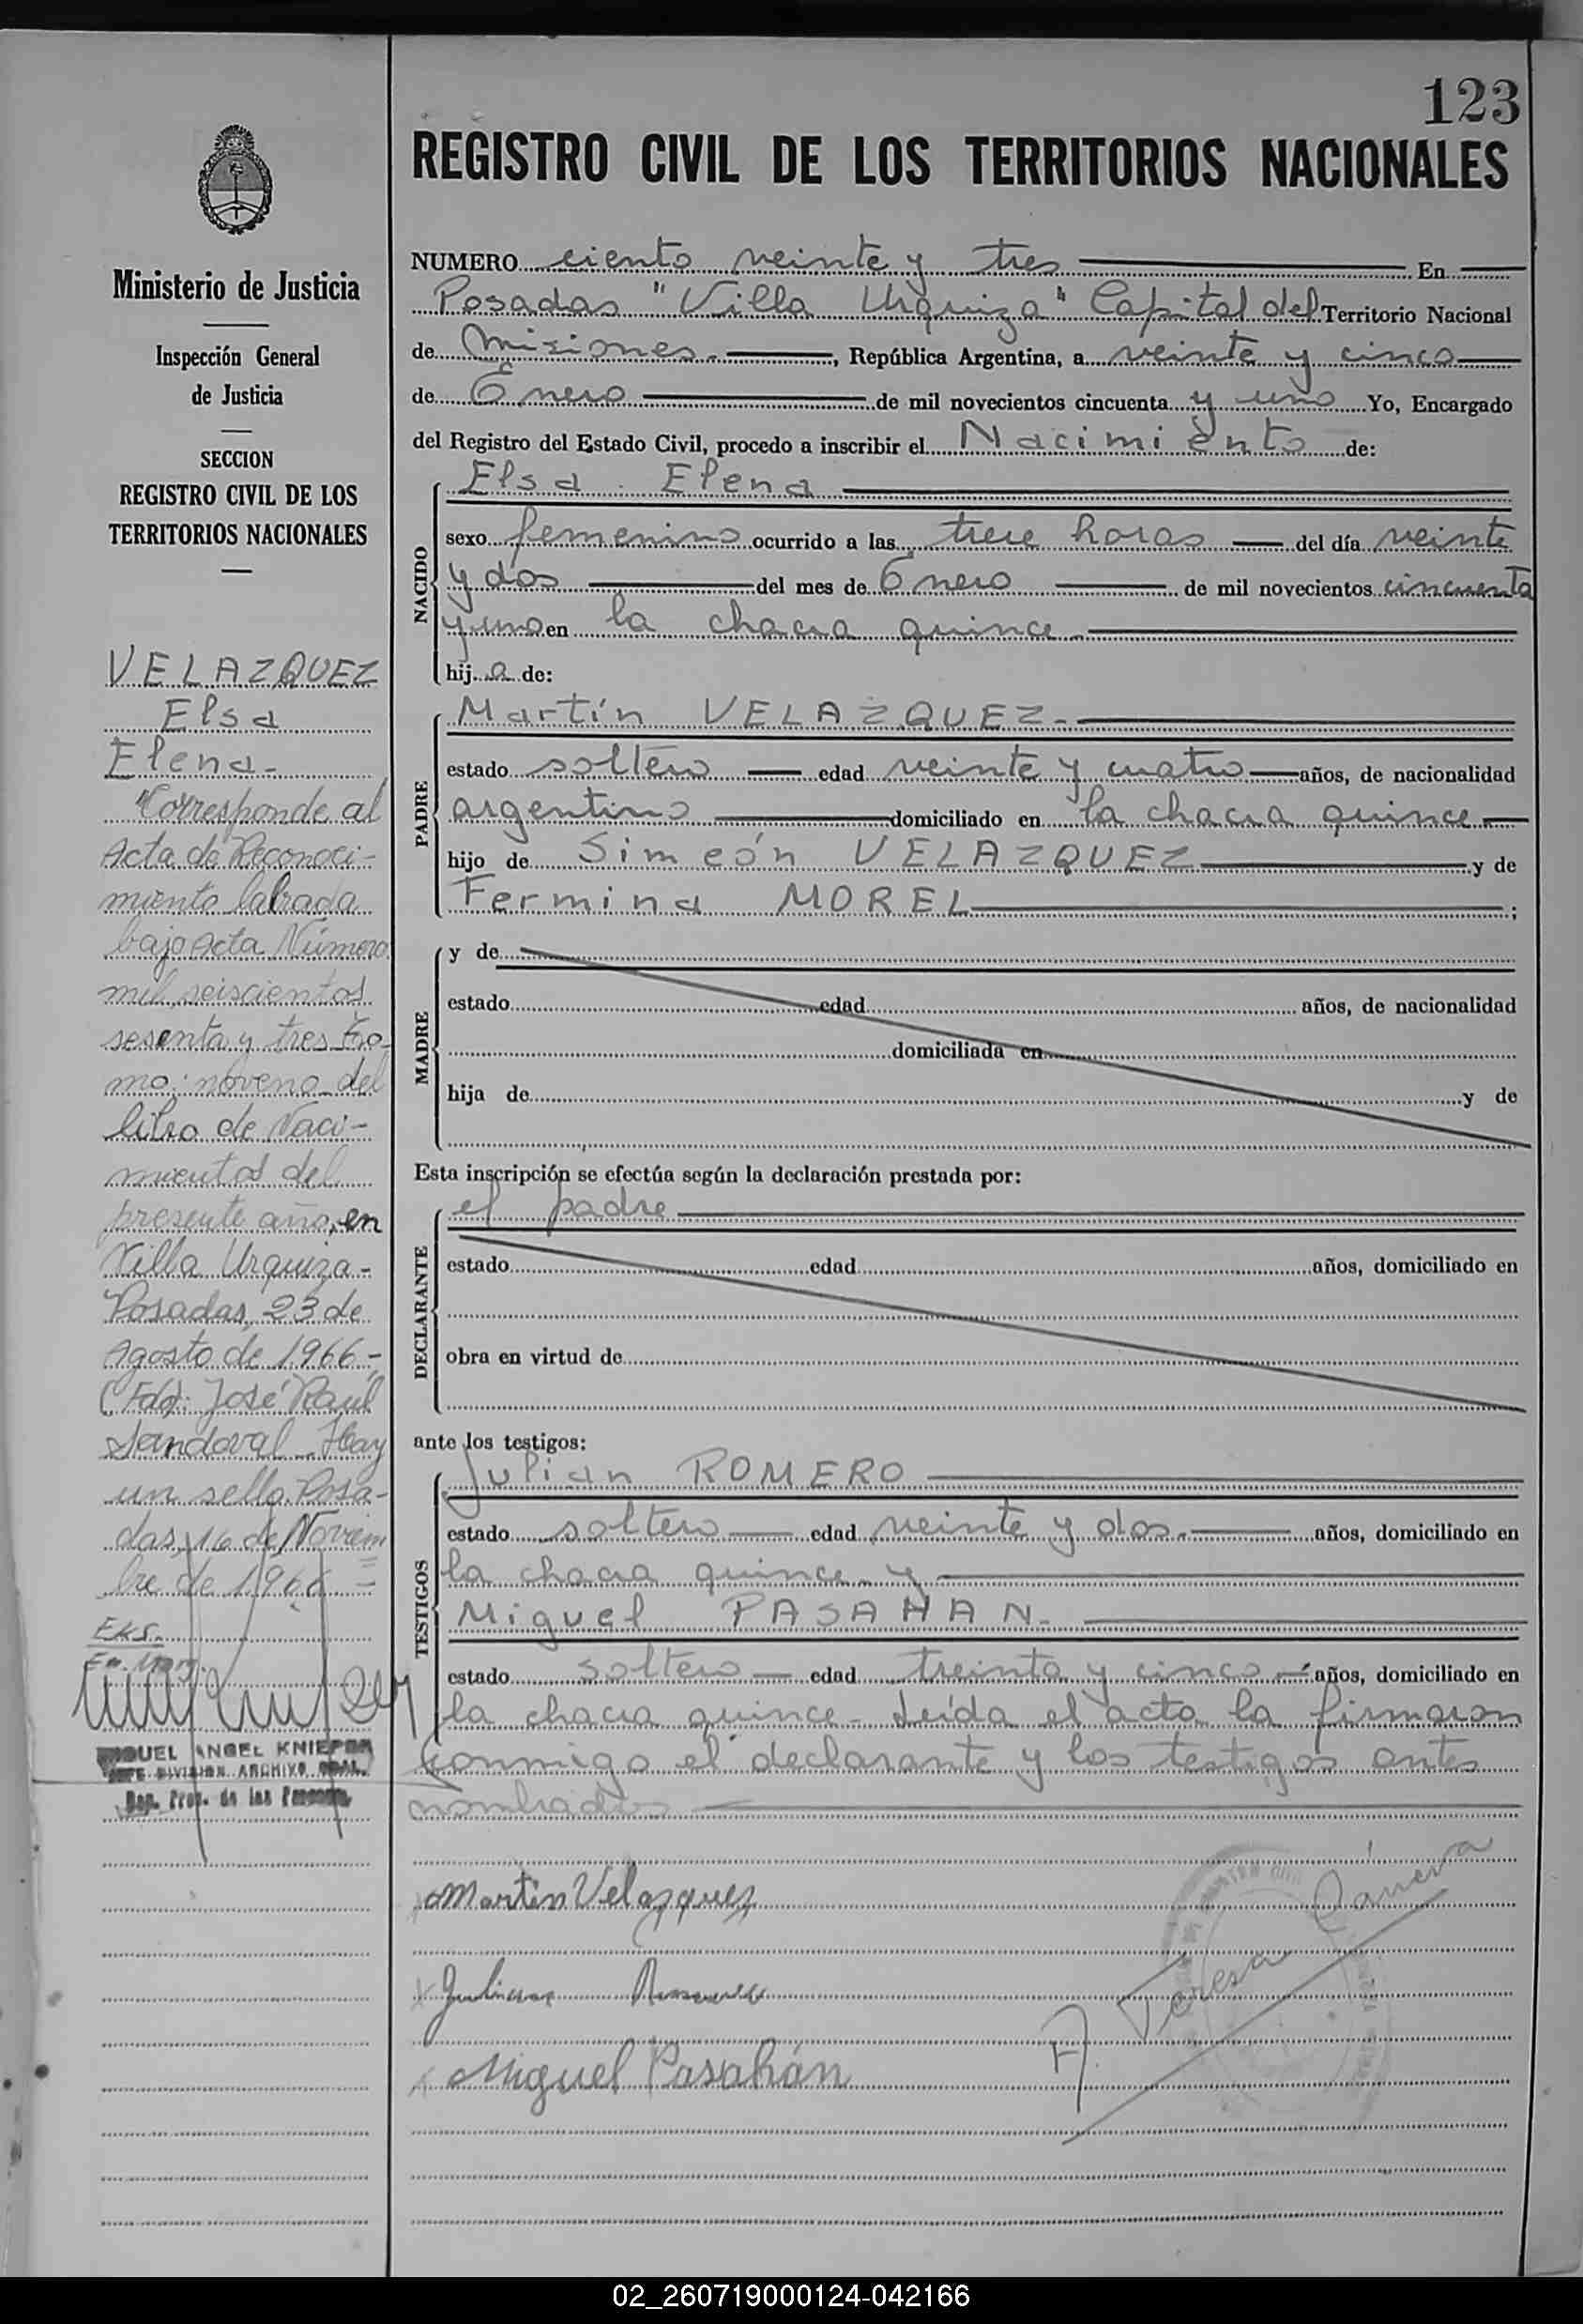 123
REGISTRO CIVIL DE LOS TERRITORIOS NACIONALES
Ministerio de Justicia
Inspección General
de Justicia
SECCION
REGISTRO CIVIL DE LOS
TERRITORIOS NACIONALES
VELAZQUEZ
Elsa
Elena-
"Corresponde al
Acta de Reconoci-
miento labrada
bajo Acta Número
mil seiscientos
sesenta y tres To-
mo: noveno del
libro de Naci-
mientos del
presente año, en
Villa Urquiza-
Posadas, 23 de
Agosto de 1966-
(Fdo): José Raúl
Sandoval Hay
un sello. Posa-
das, 16 de Noviem
bre de 1966 =
EKS.
MIGUEL ANGEL KNIEPOR
JEFE DIVISION ARCHIVO GRAL.
Rep. Prov. de las Personas
NUMERO ciento veinte y tres En
Posadas "Villa Urquiza" Capital del Territorio Nacional
de Misiones.-, República Argentina, a veinte y cinco
de Enero de mil novecientos cincuenta y uno Yo, Encargado
del Registro del Estado Civil, procedo a inscribir el Nacimiento de:
NACIDO
Elsa Elena
sexo femenino ocurrido a las trece horas del día veinte
y dos del mes de Enero de mil novecientos cincuenta
y uno en la chacra quince
hij a de:
PADRE
Martín VELAZQUEZ-
estado soltero edad veinte y cuatro años, de nacionalidad
argentino domiciliado en la chacra quince
hijo de Simeón VELAZQUEZ y de
Fermina MOREL ;
MADRE
y de
estado edad años, de nacionalidad
domiciliada en
hija de y de
Esta inscripción se efectúa según la declaración prestada por:
DECLARANTE
el padre
estado edad años, domiciliado en
obra en virtud de
ante los testigos:
TESTIGOS
Julian ROMERO
estado soltero edad veinte y dos.- años, domiciliado en
la chacra quince y
Miguel PASAHAN-
estado soltero edad treinta y cinco años, domiciliado en
la chacra quince- Leída el acta la firmaron
conmigo el declarante y los testigos antes
nombrados
Martin Velazquez
Julian Romero
Miguel Pasahán
A. Teresa Cáneva
02_260719000124-042166